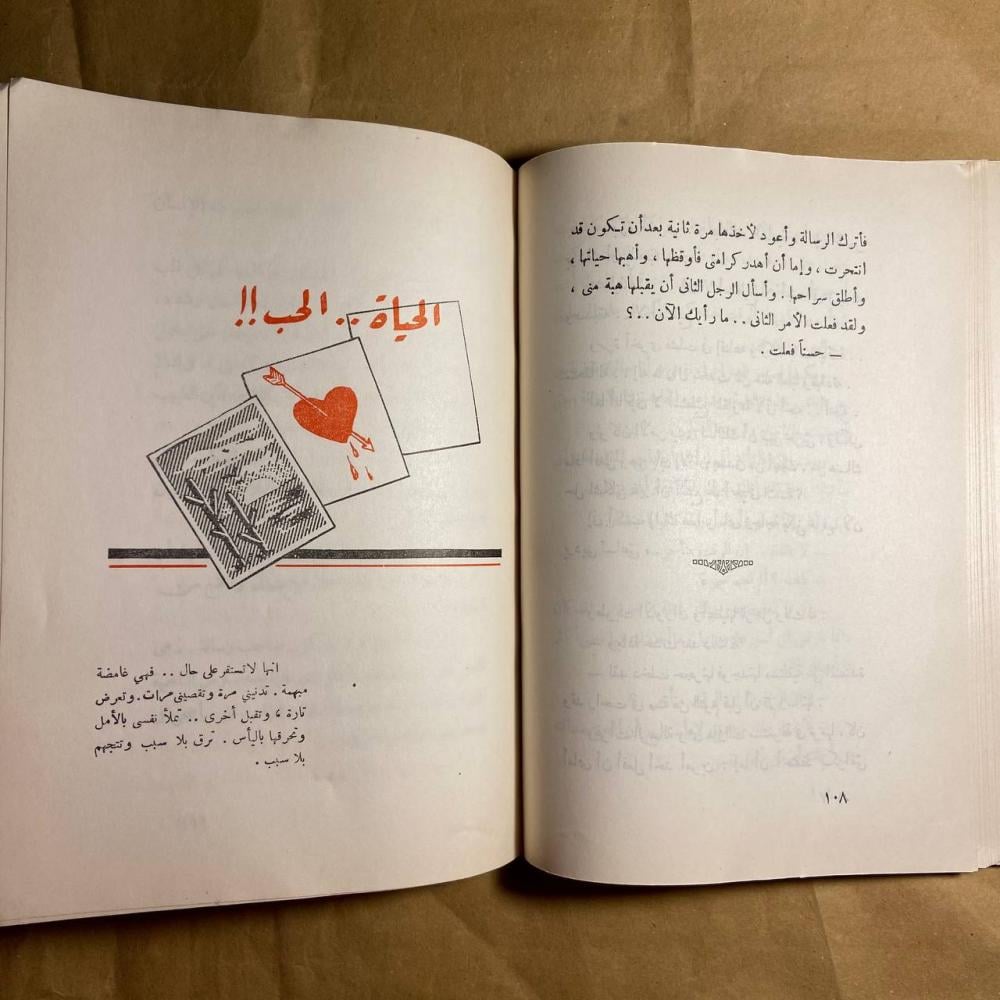 فأترك الرسالة وأعود لآخذها مرة ثانية بعدأن تكون قد
انتحرت ، وإما أن أهدر كرامتى فأوقظها ، وأهبها حياتها ،
وأطلق سراحها . وأسأل الرجل الثانى أن يقبلها هبة منى ،
ولقد فعلت الأمر الثانى . . ما رأيك الآن . . ؟
— حسناً فعلت .
١٠٨
الحياة .. الحب !!
انها لاتستقر على حال .. فهي غامضة
مبهمة . تدنيني مرة وتقصيني مرات . وتعرض
تارة ، وتقبل أخرى .. تملأ نفسى بالأمل
وتحرقها باليأس . ترق بلا سبب وتتجهم
بلا سبب .